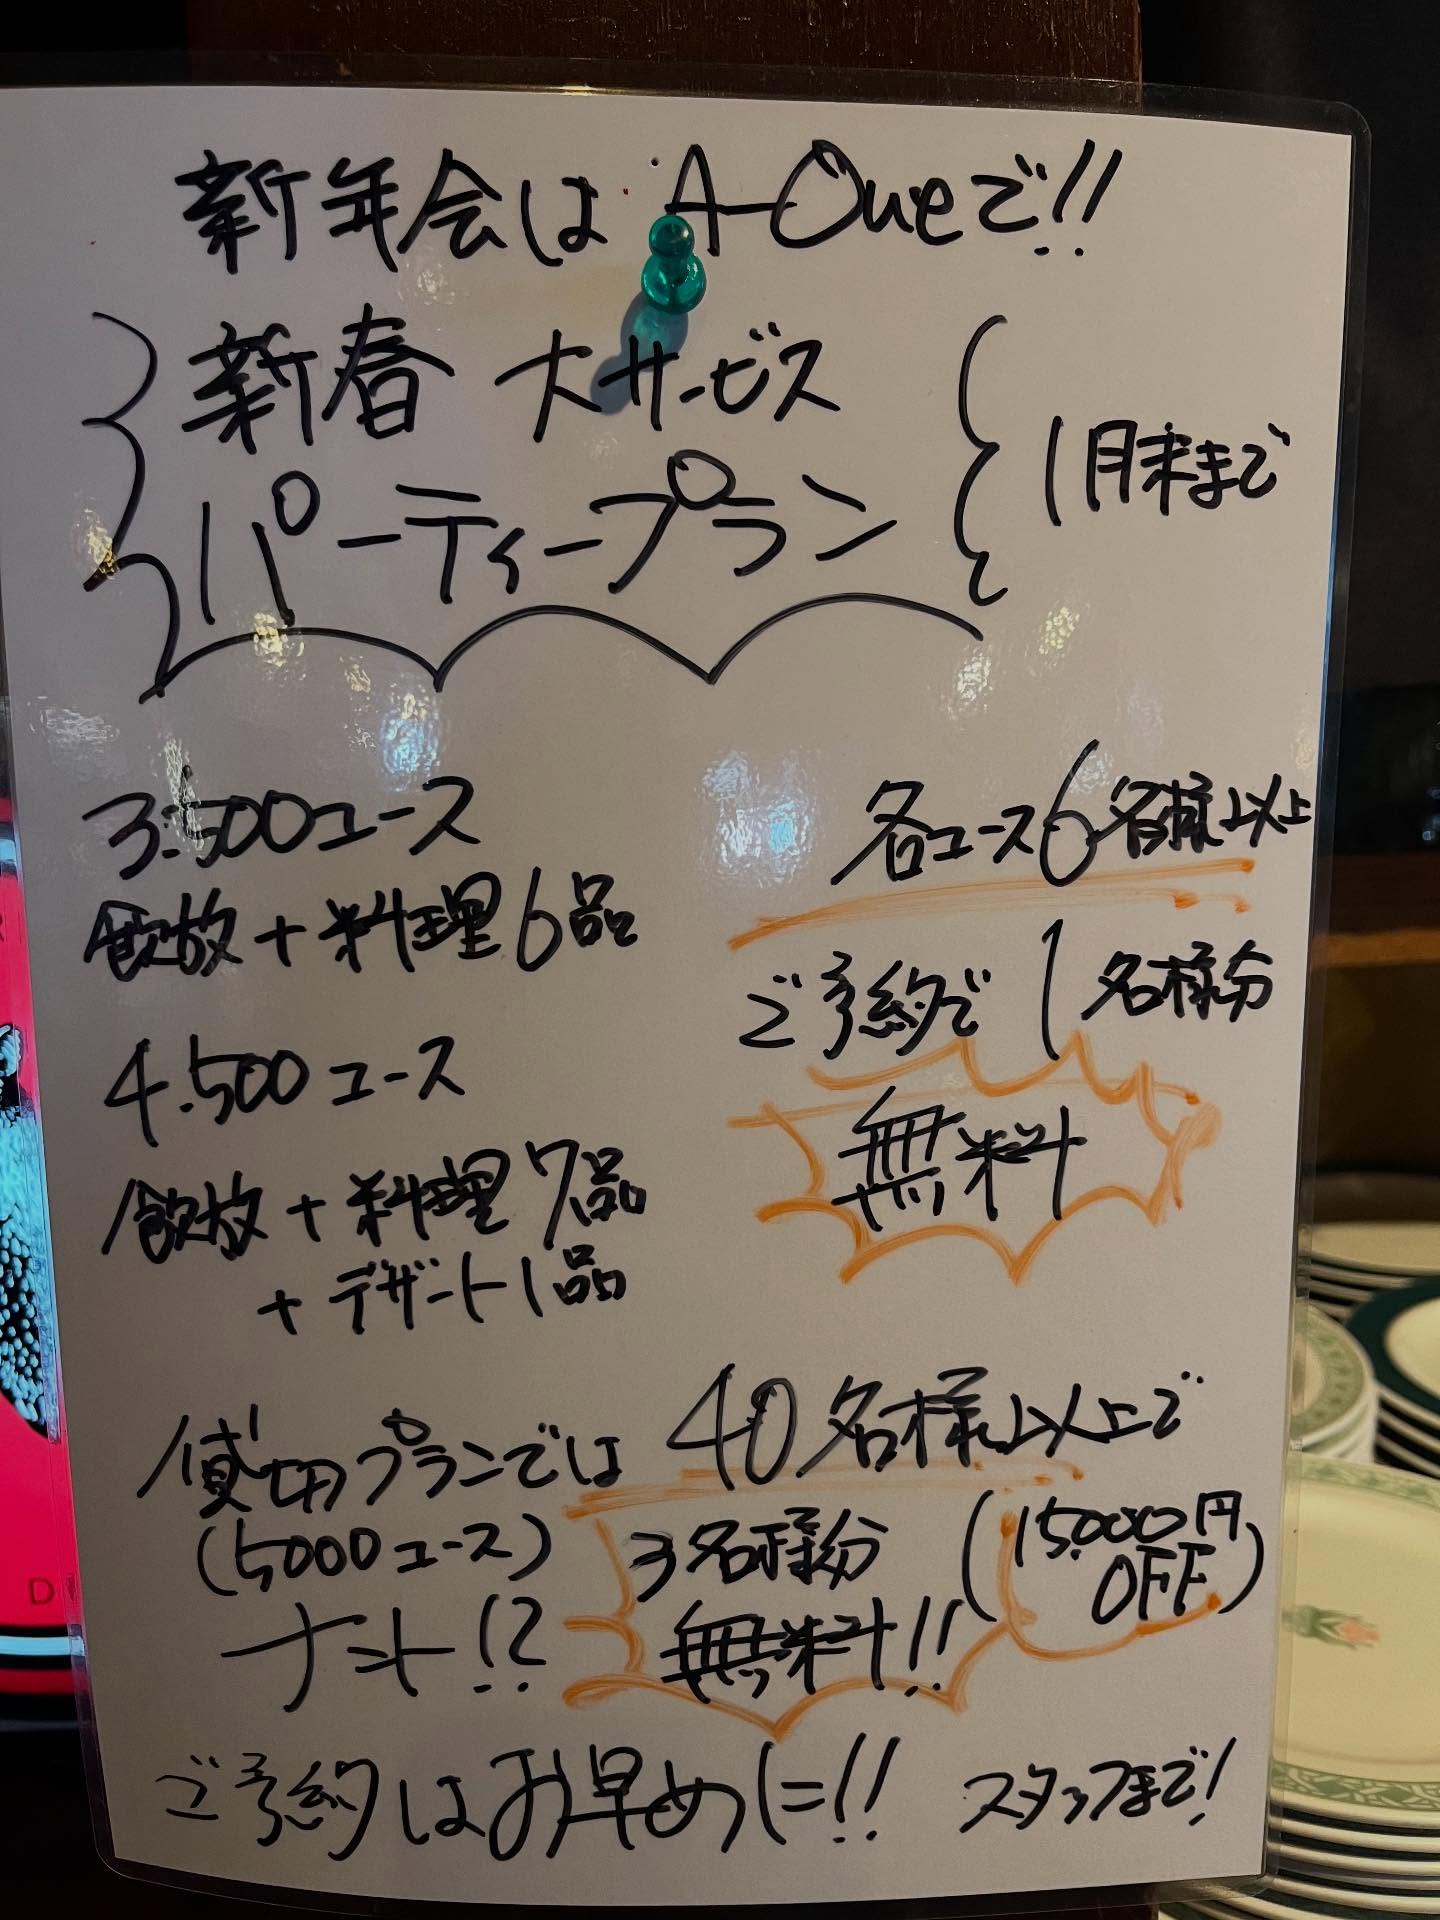 新年会は A-Oneで!!
新春 大サービス
パーティープラン
1月末まで
3.500コース
飲放+料理6品
4.500コース
飲放+料理7品
+デザート1品
各コース6名様以上
ご予約で1名様分
無料
貸切プランでは40名様以上で
(5000コース) 3名様分 (15,000円OFF)
ナント!? 無料!!
ご予約はお早めに!! スタッフまで!